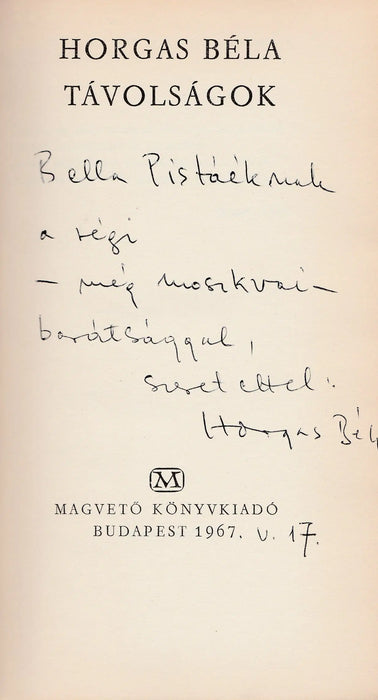 HORGAS BÉLA
TÁVOLSÁGOK
Bella Pistáéknak
a régi
– még moszkvai –
barátsággal,
szeretettel:
Horgas Bél
M
MAGVETŐ KÖNYVKIADÓ
BUDAPEST 1967. V. 17.